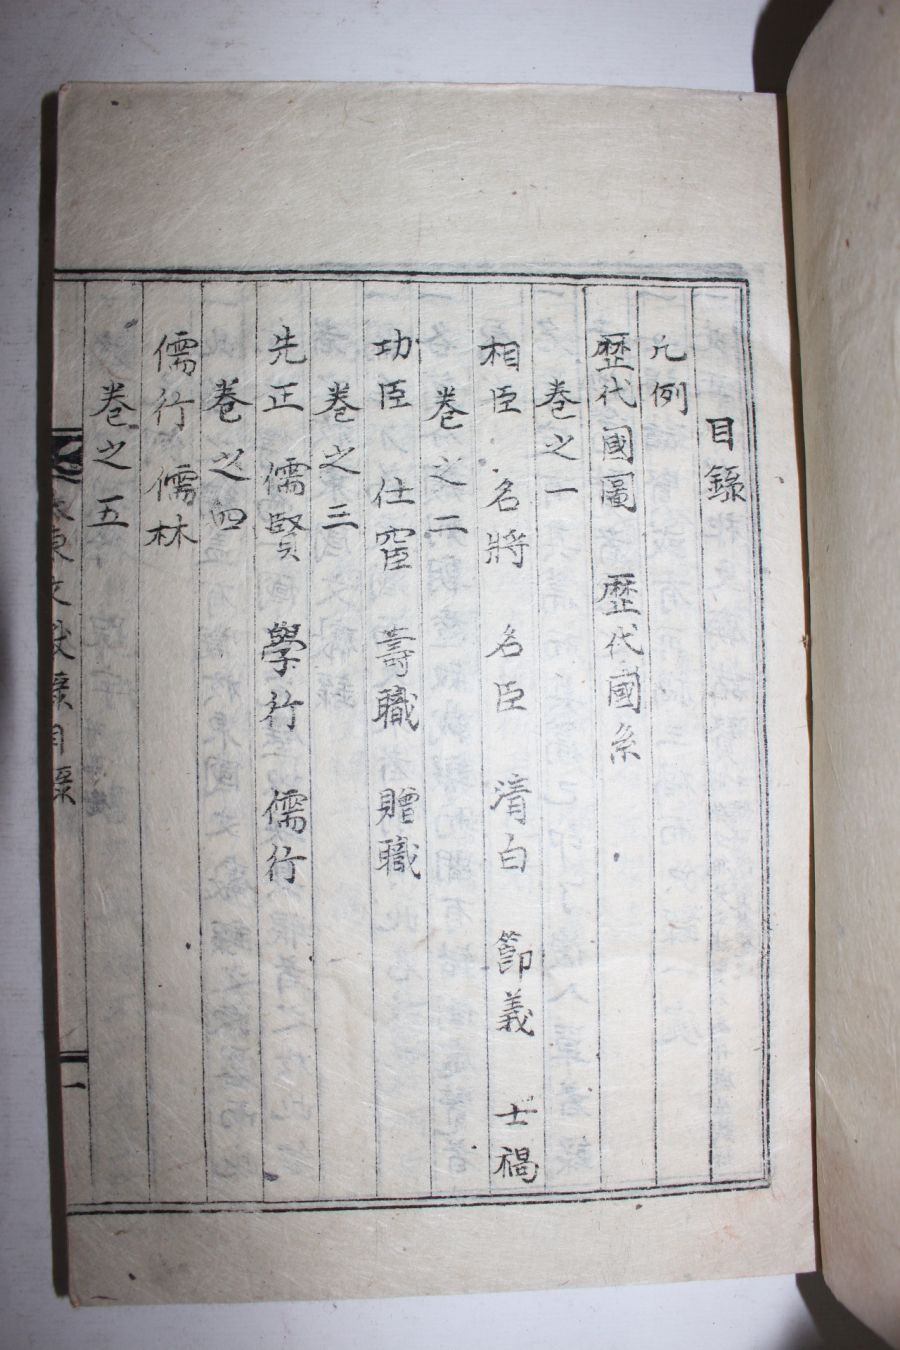 目錄
凡例
歷代國圖 歷代國系
卷之一
相臣 名將 名臣 清白 節義 士禍
卷之二
功臣 仕宦 壽職 贈職
卷之三
先正 儒賢 學行 儒行
卷之四
儒行 儒林
卷之五
東文獻錄目錄
一